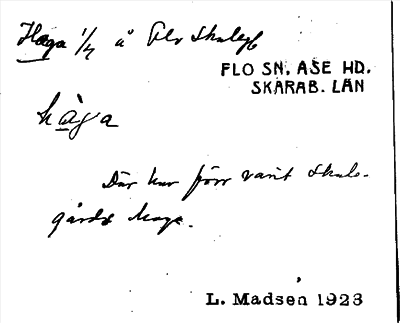 Haga 1/4 å Flo Skaleg
FLO SN. ÅSE HD.
SKARAB. LÄN
hàga
Där har förr varit Skale-
gårds haga.
L. Madsen 1923